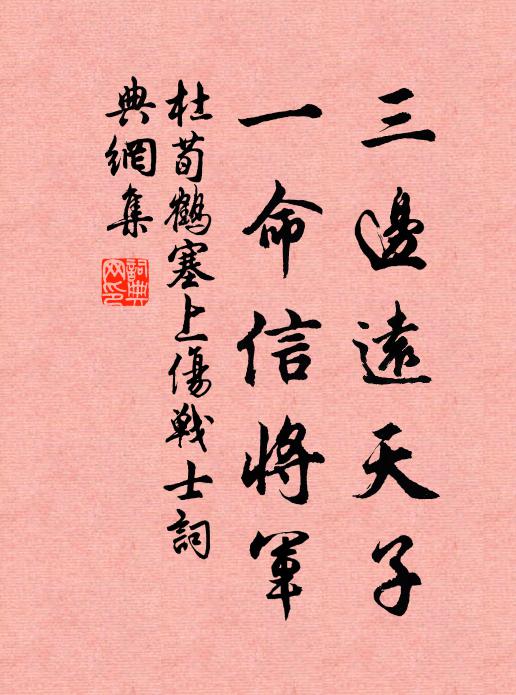 三邊遠天子
一命信將軍
杜荀鶴塞上傷戰士詞
典網集
詞典網印